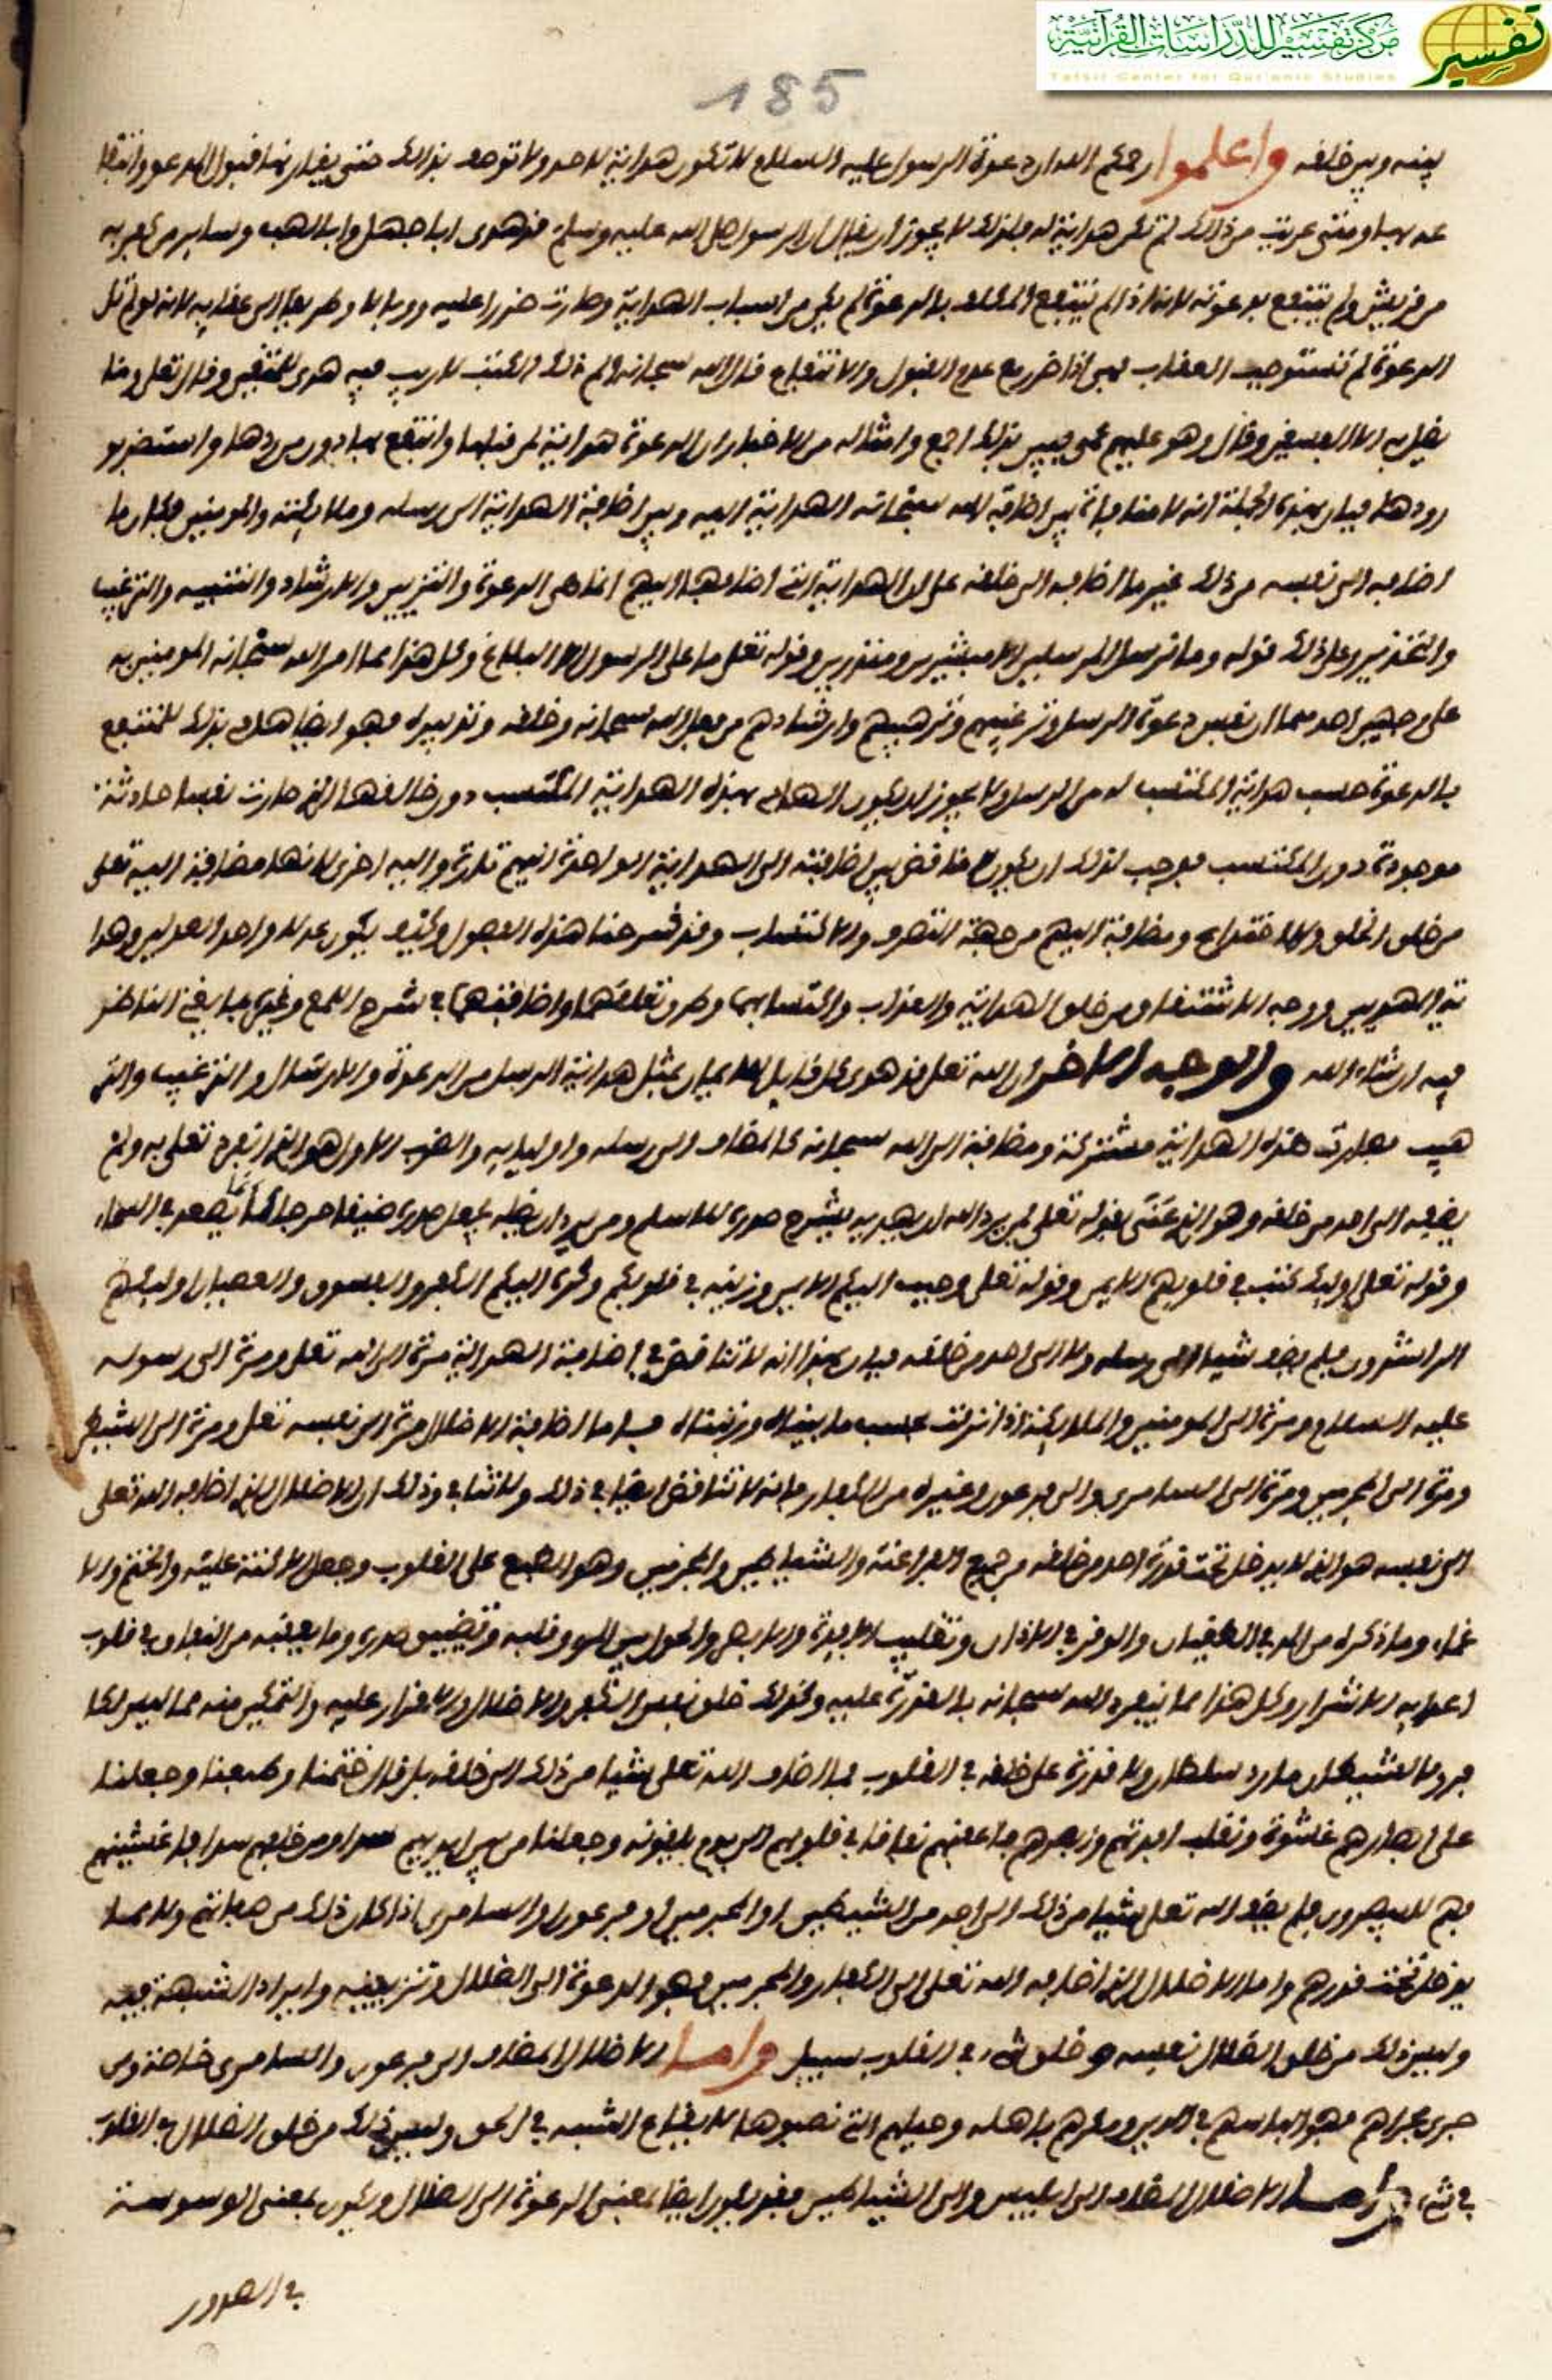 مركز تفسير للدراسات القرآنية
Tafsir Center for Qur'anic Studies
تفسير
185
بينه وبين خلقه واعلموا رحمكم الله ان دعوة الرسول عليه السلام لا تكون هداية لاحد ولا توصف بذلك حتى يقارنها قبول المدعو وانتفا
عه بها ومتى عريت من ذلك لم تكن هداية له ولذلك لا يجوز ان يقال ان الرسول صلى الله عليه وسلم قد هدى ابا جهل وابا لهب وساير من كفر به
من قريش ولم ينتفع بدعوته لانه اذا لم ينتفع المكلف بالدعوة لم يكن من اسباب الهداية وصارت ضررا عليه ووبالا وطريقا الى عقابه لانه لو لم تكن
الدعوة لم تستوجب العقاب فهي اذا ضرر مع عدم القبول والانتفاع قال الله سبحانه الم ذلك الكتب لا ريب فيه هدى للمتقين وقال تعلى وما
يضل به الا الفسقين وقال وهو عليهم عمى فبين بذلك اجمع وامثاله من الاخبار ان الدعوة هداية لمن قبلها وانتفع بها دون من ردها واستضر بو
رودها فبان بهذه الجملة انه لا منافاة بين اضافة الله سبحانه الهداية اليه وبين اضافة الهداية الى رسله وملائكته والمومنين وكان ما
اضافه الى نفسه من ذلك غير ما اضافه الى خلقه على ان الهداية التي اضافها اليهم انما هي الدعوة والتزيين والارشاد والتنبيه والترغيب
والتحذير وعلى ذلك قوله وما نرسل المرسلين الا مبشرين ومنذرين وقوله تعلى ما على الرسول الا البلاغ وكل هذا مما امر الله سبحانه المومنين به
على وجهين احدهما ان نفس دعوة الرسل وترغيبهم وترهيبهم وارشادهم من فعل الله سبحانه وخلقه وتدبيره فهو ايضا هاد بذلك للمنتفع
بالدعوة حسب هداية المكتسب له من الرسل ولا يجوز ان يكون الهادي بهذه الهداية المكتسب دون خالقها الذي صارت نفسا حادثة
موجودة دون المكتسب فوجب لذلك ان يكون لا تناقض بين اضافته الى الهداية الواحدة اليهم تارة واليه اخرى لانها مضافة اليه تعلى
من خلق الخلق والاختراع ومضافة اليهم من جهة التصرف والاكتساب وقد شرحنا هذه الفصول وكيف يكون عدلا واحدا لعدلين وهدا
ية لهاديين ووجه الاشتقاق من خلق الهداية والعذاب واكتسابهما وطرق تعلقهما واضافتهما في شرح اللمع وغيره بما يغني الناظر
فيه ان شاء الله والوجه الاخر ان الله تعلى قد هدى كل قابل للايمان بمثل هداية الرسل من الدعوة والارسال والترغيب والتر
هيب فصارت هذه الهداية مشتركة ومضافة الى الله سبحانه كالمضاف الى رسله واوليايه والضرب الاول هو الذي انفرد تعلى به ولم
يضفه الى احد من خلقه وهو الذي عنى بقوله تعلى فمن يرد الله ان يهديه يشرح صدره للاسلم ومن يرد ان يضله يجعل صدره ضيقا حرجا كأنما يصعد في السماء
وقوله تعلى اوليك كتب في قلوبهم الايمن وقوله تعلى وحبب اليكم الايمن وزينه في قلوبكم وكره اليكم الكفر والفسوق والعصيان اوليك هم
الراشدون فلم يضف شيئا الى رسله ولا الى احد من خلقه فبان بهذا انه لا تناقض في اضافة الهداية مرة الى الله تعلى ومرة الى رسوله
عليه السلام ومرة الى المومنين والملائكة اذا نزلت بحسب ما بيناه ورتبناه فاما اضافة الاضلال مرة الى نفسه تعلى ومرة الى الشيطن
ومرة الى المجرمين ومرة الى السامري والى فرعون وغيره من الكفار فانه لا تناقض ايضا في ذلك ولا تنافي وذلك ان الاضلال الذي اضافه الله تعلى
الى نفسه هو الذي لا يدخل تحت قدرة احد من خلقه من جميع الفراعنة والشياطين والمجرمين وهو الطبع على القلوب وجعل الاكنة عليه والختم والا
عماء وما ذكره من المد في الطغيان والوقر في الاذان وتقليب الافئدة والابصار والحول بين المرء وقلبه وتضييق صدره وما يعقبه من النفاق في قلوب
اعدايه الاشرار وكل هذا مما ينفرد الله سبحانه بالقدرة عليه وكذلك خلق نفس الكفر والاضلال والاقدار عليه والتمكين منه مما ليس لكا
فر ولا لشيطان مارد سلطان ولا قدرة على خلقه في القلوب فما اضاف الله تعلى شيئا من ذلك الى خلقه بل قال ختمنا وطبعنا وجعلنا
على ابصارهم غشوة ونقلب افدتهم وابصرهم فاعقبهم نفاقا في قلوبهم الى يوم يلقونه وجعلنا من بين ايديهم سدا ومن خلفهم سدا فاغشينهم
فهم لا يبصرون فلم يضف الله تعلى شيئا من ذلك الى احد من الشيطين او المجرمين او فرعون او السامري اذا كان ذلك من صفاته ولا مما
يدخل تحت قدرهم واما الاضلال الذي اضافه الله تعلى الى الكفار والمجرمين فهو الدعوة الى الضلال وتزيينه وايراد الشبهة فيه
وليس ذلك من خلق الضلال نفسه وخلق شيء في القلوب بسبيل واما الاضلال المضاف الى فرعون والسامري خاصة ومن
جرى مجراهم فهو الباسهم في الدين ومكرهم باهله وحيلهم التي نصبوها لايقاع الشبه في الحق وليس ذلك من خلق الضلال في القلوب
في شيء واما الاضلال المضاف الى ابليس والى الشياطين فقد يكون ايضا بمعنى الدعوة الى الضلال ويكون بمعنى الوسوسة
في الصدور